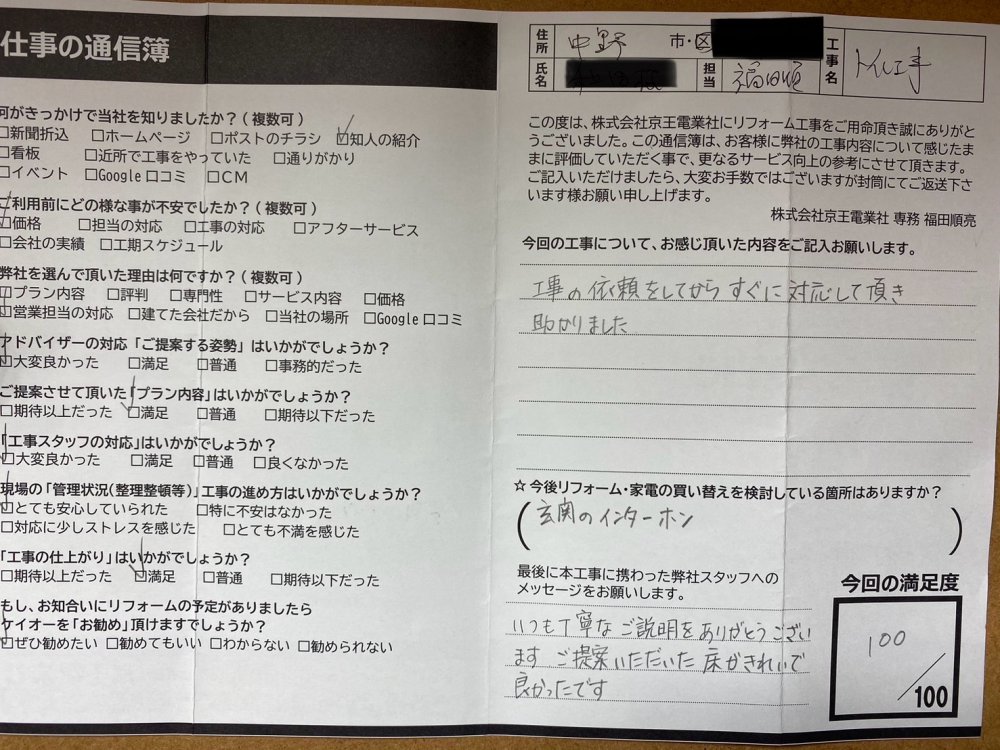 仕事の通信簿
何がきっかけで当社を知りましたか?(複数可)
□新聞折込 □ホームページ □ポストのチラシ ☑知人の紹介
□看板 □近所で工事をやっていた □通りがかり
□イベント □Google口コミ □CM
ご利用前にどの様な事が不安でしたか?(複数可)
☑価格 □担当の対応 □工事の対応 □アフターサービス
□会社の実績 □工期スケジュール
弊社を選んで頂いた理由は何ですか?(複数可)
☑プラン内容 □評判 □専門性 □サービス内容 □価格
☑営業担当の対応 □建てた会社だから □当社の場所 □Google口コミ
アドバイザーの対応「ご提案する姿勢」はいかがでしょうか?
☑大変良かった □満足 □普通 □事務的だった
ご提案させて頂いた「プラン内容」はいかがでしょうか?
□期待以上だった ☑満足 □普通 □期待以下だった
「工事スタッフの対応」はいかがでしょうか?
☑大変良かった □満足 □普通 □良くなかった
現場の「管理状況(整理整頓等)」工事の進め方はいかがでしょうか?
☑とても安心していられた □特に不安はなかった
□対応に少しストレスを感じた □とても不満を感じた
「工事の仕上がり」はいかがでしょうか?
□期待以上だった ☑満足 □普通 □期待以下だった
もし、お知合いにリフォームの予定がありましたら
ケイオーを「お勧め」頂けますでしょうか?
☑ぜひ勧めたい □勧めてもいい □わからない □勧められない
住所 中野 市・区
氏名 担当 福田順 工事名 トイレ工事
この度は、株式会社京王電業社にリフォーム工事をご用命頂き誠にありがと
うございました。この通信簿は、お客様に弊社の工事内容について感じたま
まに評価していただく事で、更なるサービス向上の参考にさせて頂きます。
ご記入いただけましたら、大変お手数ではございますが封筒にてご返送下さ
います様お願い申し上げます。
株式会社京王電業社 専務 福田順亮
今回の工事について、お感じ頂いた内容をご記入お願いします。
工事の依頼をしてからすぐに対応して頂き
助かりました
☆今後リフォーム・家電の買い替えを検討している箇所はありますか?
(玄関のインターホン)
最後に本工事に携わった弊社スタッフへの
メッセージをお願いします。
いつも丁寧なご説明をありがとうござい
ます ご提案いただいた床がきれいで
良かったです
今回の満足度
100
/100